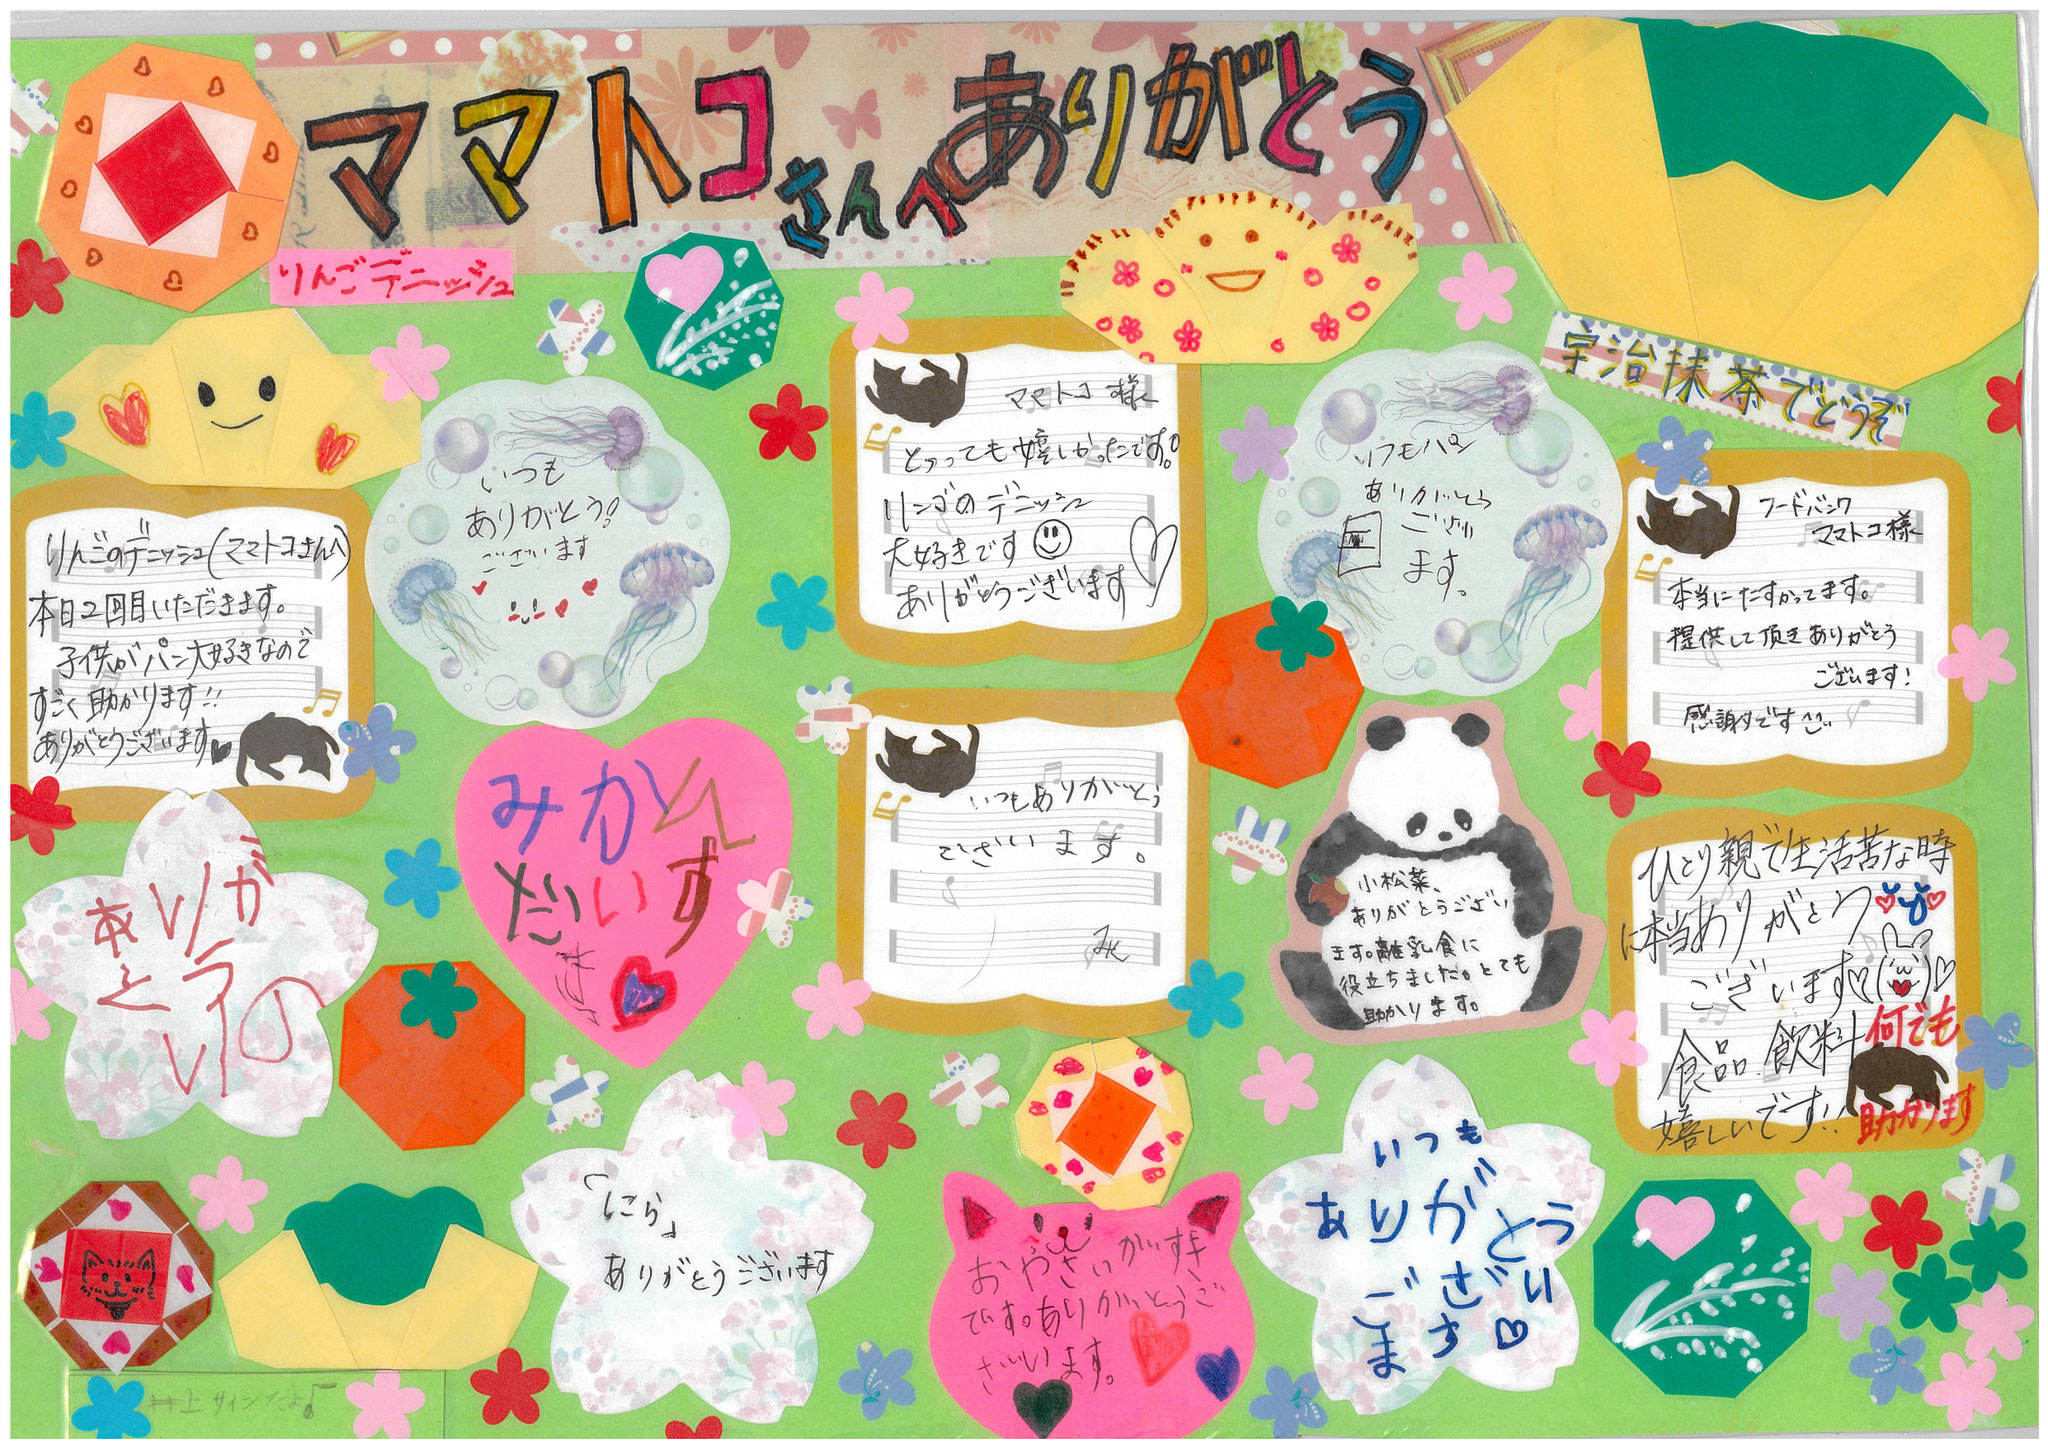 ママトコさんへありがとう
りんごデニッシュ
宇治抹茶でどうぞ
りんごのデニッシュ(ママトコさんへ)
本日2回目いただきます。
子供がパン大好きなので
すごく助かります!!
ありがとうございます
いつも
ありがとう!
ございます
ママトコ様
とっっても嬉しかったです!
リンゴのデニッシュ
大好きです
ありがとうございます
いつもパン
ありがとう
ござい
ます。
フードバンク
ママトコ様
本当にたすかってます。
提供して頂きありがとう
ございます!
感謝です
みかん
だいす
いつもありがとう
ございます。
小松菜、
ありがとうござい
ます。離乳食に
役立ちました。とても
助かります。
ひとり親で生活苦な時
に本当ありがとう
ございます
食品、飲料何でも
嬉しいです!!助かります
「にら」
ありがとうございます
おやさいがいすき
です。ありがとうご
ざいます。
いつも
ありがとう
ござい
ます
井上サインだよ